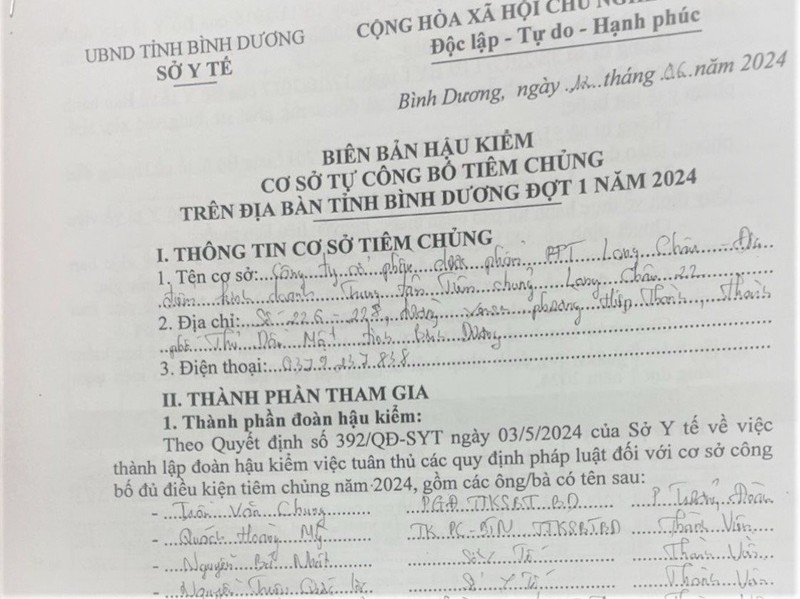 UBND TỈNH BÌNH DƯƠNG
SỞ Y TẾ
CỘNG HÒA XÃ HỘI CHỦ
Độc lập - Tự do - Hạnh phúc
Bình Dương, ngày tháng 06 năm 2024
BIÊN BẢN HẬU KIỂM
CƠ SỞ TỰ CÔNG BỐ TIÊM CHỦNG
TRÊN ĐỊA BÀN TỈNH BÌNH DƯƠNG ĐỢT 1 NĂM 2024
I. THÔNG TIN CƠ SỞ TIÊM CHỦNG
1. Tên cơ sở: Công ty cổ phần dược phẩm FPT Long Châu - Địa
điểm kinh doanh Trung tâm Tiêm chủng Long Châu 22
2. Địa chỉ: Số 226 - 228, đường phường Hiệp Thành, Thành
phố Thủ Dầu Một tỉnh Bình Dương
3. Điện thoại: 0379.237.838
II. THÀNH PHẦN THAM GIA
1. Thành phần đoàn hậu kiểm:
Theo Quyết định số 392/QĐ-SYT ngày 03/5/2024 của Sở Y tế về việc
thành lập đoàn hậu kiểm việc tuân thủ các quy định pháp luật đối với cơ sở công
bố đủ điều kiện tiêm chủng năm 2024, gồm các ông/bà có tên sau:
- Trần Văn Chung PGĐ TTKSBT BD P Trưởng Đoàn
- Quách Hoàng Mỹ TK PC-BTN TTKSBTBD Thành Viên
- Nguyễn Nhật Sở Y Tế Thành Viên
- Nguyễn Sở Y Tế Thành Viên